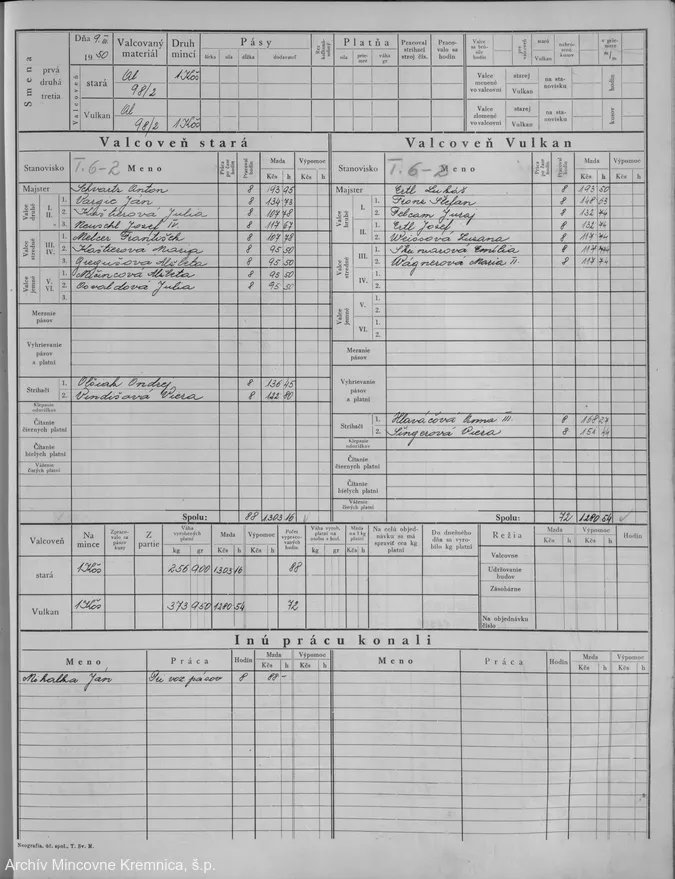 Smena
prvá
druhá
tretia
Dňa 9/III 1950
Valcovaný materiál
Druh mincí
Pásy
šírka sila dĺžka dodávateľ
Platňa
Pracoval strihací stroj čís.
Pracovalo sa hodín
Valcovňa
stará Al 98/2 1 Kčs
Vulkan Al 98/2 1 Kčs
Valce menené vo valcovni
starej
Vulkan
na stanovisku
hodín
Valce zlomené vo valcovni
starej
Vulkan
na stanovisku
kusov
Valcoveň stará
Stanovisko I. 6-2 Meno Práca po čase hodín Pracoval hodín Mzda Výpomoc
Kčs h Kčs h
Majster Schvartz Anton 8 193 95
Valce hrubé I. II.
1. Vargic Ján 8 134 73
2. Kašlierová Julia 8 107 78
3. Neuschl Jozef IV. 8 117 67
Valce stredné III. IV.
1. Melcer František 8 107 78
2. Kašlierová Mária 8 95 50
3. Gregušová Alžbeta 8 95 50
Valce jemné V. VI.
1. Alžbeta 8 95 50
2. Osvaldová Julia 8 95 50
3.
Meranie pásov
Vyhrievanie pásov a platní
Strihači
1. Ondrej 8 136 45
2. Vindišová Viera 8 122 80
Klepanie odstrižkov
Čítanie čiernych platní
Čítanie bielych platní
Váženie čistých platní
Spolu: 88 1303 16
Valcoveň Vulkan
Stanovisko I. 6-2 Meno Práca po čase hodín Pracoval hodín Mzda Výpomoc
Kčs h Kčs h
Majster Ertl Lukáš 8 193 50
Valce hrubé
I. 1. Štefan 8 148 63
2. Juraj 8 132 74
II. 1. Ertl Jozef 8 132 74
2. Weissová Zuzana 8 117 74
Valce stredné
III. 1. Emília 8 117 74
2. Wágnerová Maria II. 8 117 74
IV. 1.
2.
Valce jemné
V. 1.
2.
VI. 1.
2.
Meranie pásov
Vyhrievanie pásov a platní
Strihači
1. Hlaváčová Anna III. 8 168 27
2. Singerová Viera 8 151 44
Klepanie odstrižkov
Čítanie čiernych platní
Čítanie bielych platní
Váženie čistých platní
Spolu: 72 1280 54
Valcoveň Na mince Z partie Váha vyrobených platní Mzda Výpomoc Počet vypracovaných hodín
kg gr Kčs h Kčs h
stará 1 Kčs 256 900 1303 16 88
Vulkan 1 Kčs 373 950 1280 54 72
Váha vyrob. platní na osobu a hod.
Mzda na 1 kg platní
Na celú objednávku sa má spraviť ora kg platní
Do dnešného dňa sa vyrobilo kg platní
Réžia Mzda Výpomoc
Valcovne
Udržovanie budov
Zásobárne
Na objednávku číslo
Inú prácu konali
Meno Práca Hodín Mzda Výpomoc
Kčs h Kčs h
Mihalka Ján Pri voz pásov 8 88 -
Meno Práca Hodín Mzda Výpomoc
Kčs h Kčs h
Neografia, úč. spol., T. Sv. M.
Archív Mincovne Kremnica, š.p.